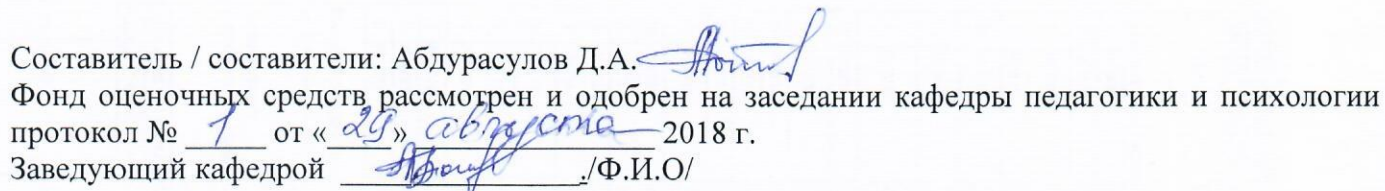 Составитель / составители: Абдурасулов Д.А.
Фонд оценочных средств рассмотрен и одобрен на заседании кафедры педагогики и психологии
протокол № 1 от «29» августа 2018 г.
Заведующий кафедрой ./Ф.И.О/